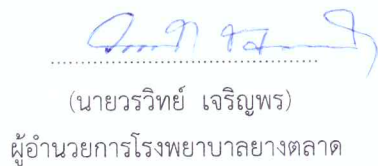 (นายวรวิทย์ เจริญพร)
ผู้อำนวยการโรงพยาบาลยางตลาด